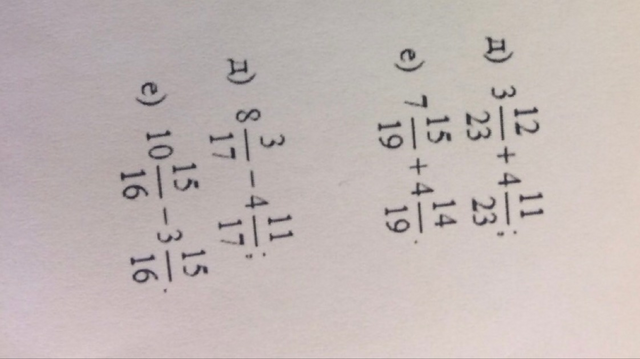 д) 3 12/23 + 4 11/23;
е) 7 15/19 + 4 14/19.
д) 8 3/17 − 4 11/17;
е) 10 15/16 − 3 15/16.